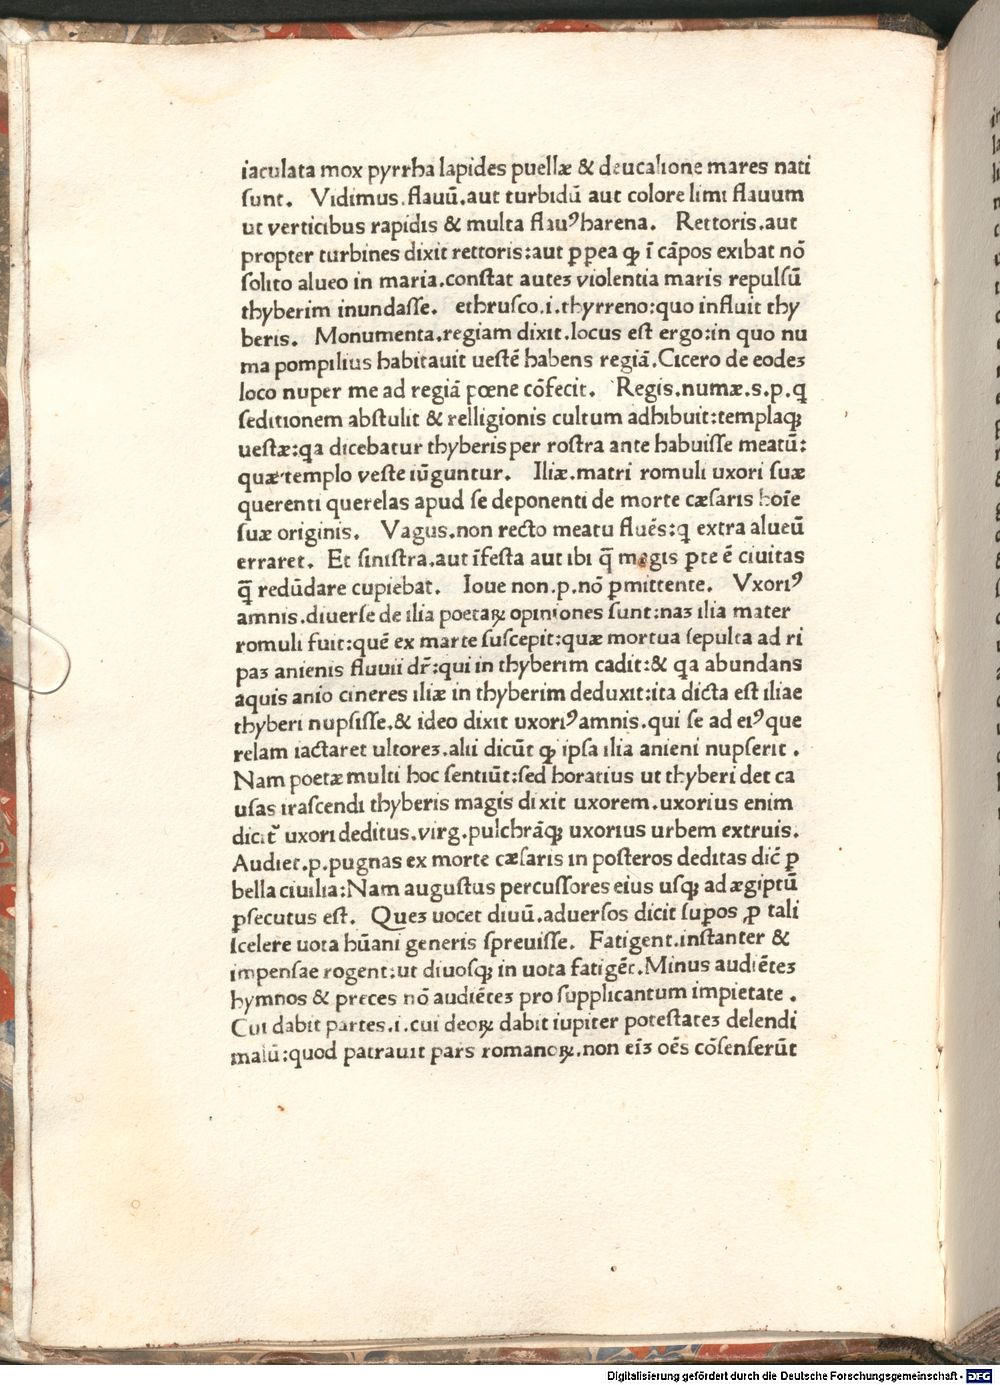 iaculata mox pyrrha lapides puellæ & deucalione mares nati
ſunt. Vidimus.flauū.aut turbidū aut colore limi flauum
ut verticibus rapidis & multa flauꝰharena. Rettoris.aut
propter turbines dixit rettoris:aut ꝑ pea ꝙ ī cāpos exibat nō
ſolito alueo in maria.conſtat auteꝫ violentia maris repulſū
thyberim inundaſſe. ethruſco.i.thyrreno:quo influit thy
beris. Monumenta.regiam dixit.locus eſt ergo:in quo nu
ma pompilius habitauit ueſtē habens regiā.Cicero de eodeꝫ
loco nuper me ad regiā pœne cōfecit. Regis.numæ.s.p.q
ſeditionem abſtulit & relligionis cultum adhibuit:templaqꝫ
ueſtæ:qa dicebatur thyberis per roſtra ante habuiſſe meatū:
quæ templo veſte iūguntur. Iliæ.matri romuli uxori ſuæ
querenti querelas apud ſe deponenti de morte cæſaris hoīe
ſuæ originis. Vagus.non recto meatu fluēs:q extra alueū
erraret. Et ſiniſtra.aut īfeſta aut ibi q̄ magis ꝑte ē ciuitas
q̄ redūdare cupiebat. Ioue non.p.nō ꝑmittente. Vxoriꝰ
amnis.diuerſe de ilia poetaꝝ opiniones ſunt:naꝫ ilia mater
romuli fuit:quē ex marte ſuſcepit:quæ mortua ſepulta ad ri
paꝫ anienis fluuii dr̄:qui in thyberim cadit:& qa abundans
aquis anio cineres iliæ in thyberim deduxit:ita dicta eſt iliae
thyberi nupſiſſe.& ideo dixit uxoriꝰamnis.qui ſe ad eiꝰque
relam iactaret ultoreꝫ.alii dicūt ꝙ ipſa ilia anieni nupſerit .
Nam poetæ multi hoc ſentiūt:ſed horatius ut thyberi det ca
uſas iraſcendi thyberis magis dixit uxorem.uxorius enim
dicit᷑ uxori deditus.virg.pulchrāqꝫ uxorius urbem extruis.
Audiet.p.pugnas ex morte cæſaris in poſteros deditas dic̄ ꝑ
bella ciuilia:Nam auguſtus percuſſores eius uſqꝫ ad ægiptū
ꝑſecutus eſt. Queꝫ uocet diuū.aduerſos dicit ſuꝑos ꝓ tali
ſcelere uota hūani generis ſpreuiſſe. Fatigent.inſtanter &
impenſae rogent:ut diuoſqꝫ in uota fatigēt.Minus audiēteꝫ
hymnos & preces nō audiēteꝫ pro ſupplicantum impietate .
Cui dabit partes.i.cui deoꝝ dabit iupiter poteſtateꝫ delendi
malū:quod patrauit pars romanoꝝ.non eīꝫ oēs cōſenſerūt
Digitalisierung gefördert durch die Deutsche Forschungsgemeinschaft - DFG